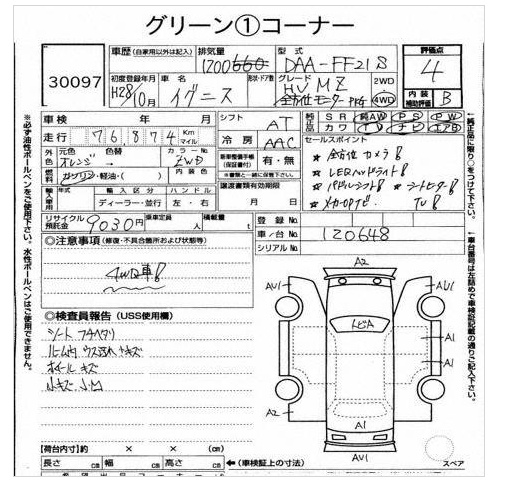 グリーン①コーナー
30097
車歴(自家用以外は記入)
排気量
1200
660
型式
DAA-FF21S
評価点
4
初度登録年月
H28/10月
車名
イグニス
形状・ドア数
グレード
HV MZ
全方位モニターPKG
2WD
4WD
内装補助評価
B
車検 年 月
シフト
AT
純正品
SR 純AW PS PW
カワ TV ナビ エアB
走行 76874 Km マイル
冷房
AAC
セールスポイント
★全方位カメラ
★LEDヘッドライト
★パドルシフト ★シートヒーター
★メーカーOPナビ TV
外色 元色 色替 カラーNo.
オレンジ
ZWD
新車整備手帳(保証書付)
有・無
※書類と一緒に保管下さい。
燃料 ガソリン・軽油・( ) 内装色
輸入車用 輸入区分 ハンドル
ディーラー・並行 左・右
譲渡書類有効期限
月 日
リサイクル預託金 9030円
乗車定員 人
積載量 t
登録No.
車/台No. 120648
シリアルNo.
◎注意事項(修復・不具合箇所および状態等)
4WD車
◎検査員報告(USS使用欄)
シート フチヘタリ
ルーム内 ウス汚れ キズ
ホイール キズ
小キズ
A2
AU1
AU1
トビA
A1
A1
A2
A1
A1
AU1
スペア
【荷台内寸】約 × × (cm)
長さ cm 幅 cm 高さ cm
←(車検証上の寸法)
※必ず油性ボールペンをご使用下さい。水性ボールペンはご使用できません。
←純正品に限り○をつけて下さい。
←車台番号は左詰めで車検証記載の通りご記入下さい。